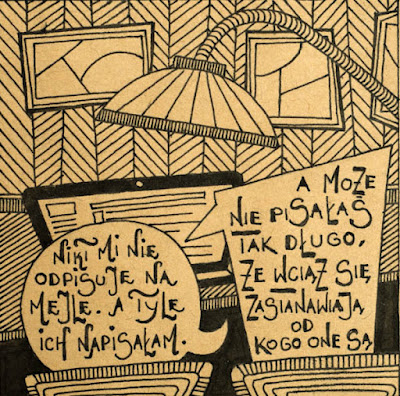 NIKT MI NIE
ODPISUJE NA
MEJLE. A TYLE
ICH NAPISAŁAM.
A MOŻE
NIE PISAŁAŚ
TAK DŁUGO,
ŻE WCIĄŻ SIĘ
ZASTANAWIAJĄ
OD
KOGO ONE SĄ